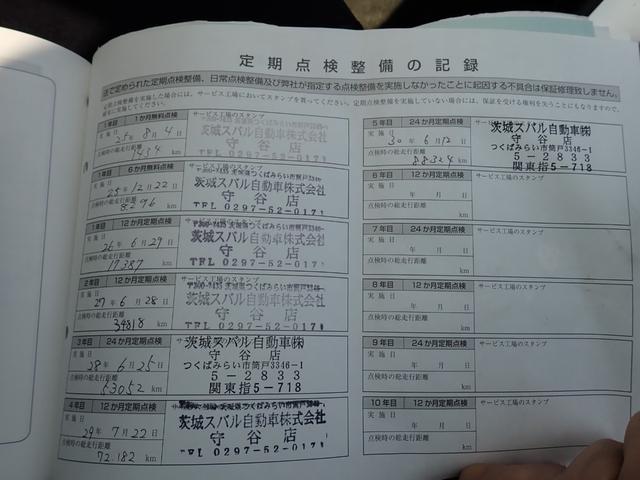 定期点検整備の記録
法で定められた定期点検整備、日常点検整備及び弊社が指定する点検整備を実施しなかったことに起因する不具合は保証修理致しません。
定期点検整備を実施した場合には、サービス工場においてスタンプを貰ってください。定期点検整備を実施していない場合には、保証を受ける権利を失うこともありますので、
1年目 1か月無料点検
サービス工場のスタンプ
実施日
25年 8月 4日
点検時の総走行距離
1454 km
茨城スバル自動車株式会社
守谷店
TEL 0297-52-0171
1年目 6か月無料点検
サービス工場のスタンプ
実施日
25年 12月 22日
点検時の総走行距離
8296 km
茨城スバル自動車株式会社
守谷店
TEL 0297-52-0171
1年目 12か月定期点検
サービス工場のスタンプ
実施日
26年 6月 29日
点検時の総走行距離
17387 km
茨城スバル自動車株式会社
守谷店
TEL 0297-52-0171
2年目 12か月定期点検
サービス工場のスタンプ
実施日
27年 6月 28日
点検時の総走行距離
34818 km
茨城スバル自動車株式会社
守谷店
TEL 0297-52-0171
3年目 24か月定期点検
実施日
28年 6月 25日
点検時の総走行距離
53052 km
茨城スバル自動車㈱
守谷店
つくばみらい市筒戸3346-1
5-2833
関東指5-718
4年目 12か月定期点検
実施日
29年 7月 22日
点検時の総走行距離
72,182 km
茨城スバル自動車株式会社
守谷店
5年目 24か月定期点検
実施日
30年 6月 12日
点検時の総走行距離
88324 km
茨城スバル自動車㈱
守谷店
つくばみらい市筒戸3346-1
5-2833
関東指5-718
6年目 12か月定期点検
サービス工場のスタンプ
実施日
年 月 日
点検時の総走行距離
km
7年目 24か月定期点検
サービス工場のスタンプ
実施日
年 月 日
点検時の総走行距離
km
8年目 12か月定期点検
サービス工場のスタンプ
実施日
年 月 日
点検時の総走行距離
km
9年目 24か月定期点検
サービス工場のスタンプ
実施日
年 月 日
点検時の総走行距離
km
10年目 12か月定期点検
サービス工場のスタンプ
実施日
年 月 日
点検時の総走行距離
km